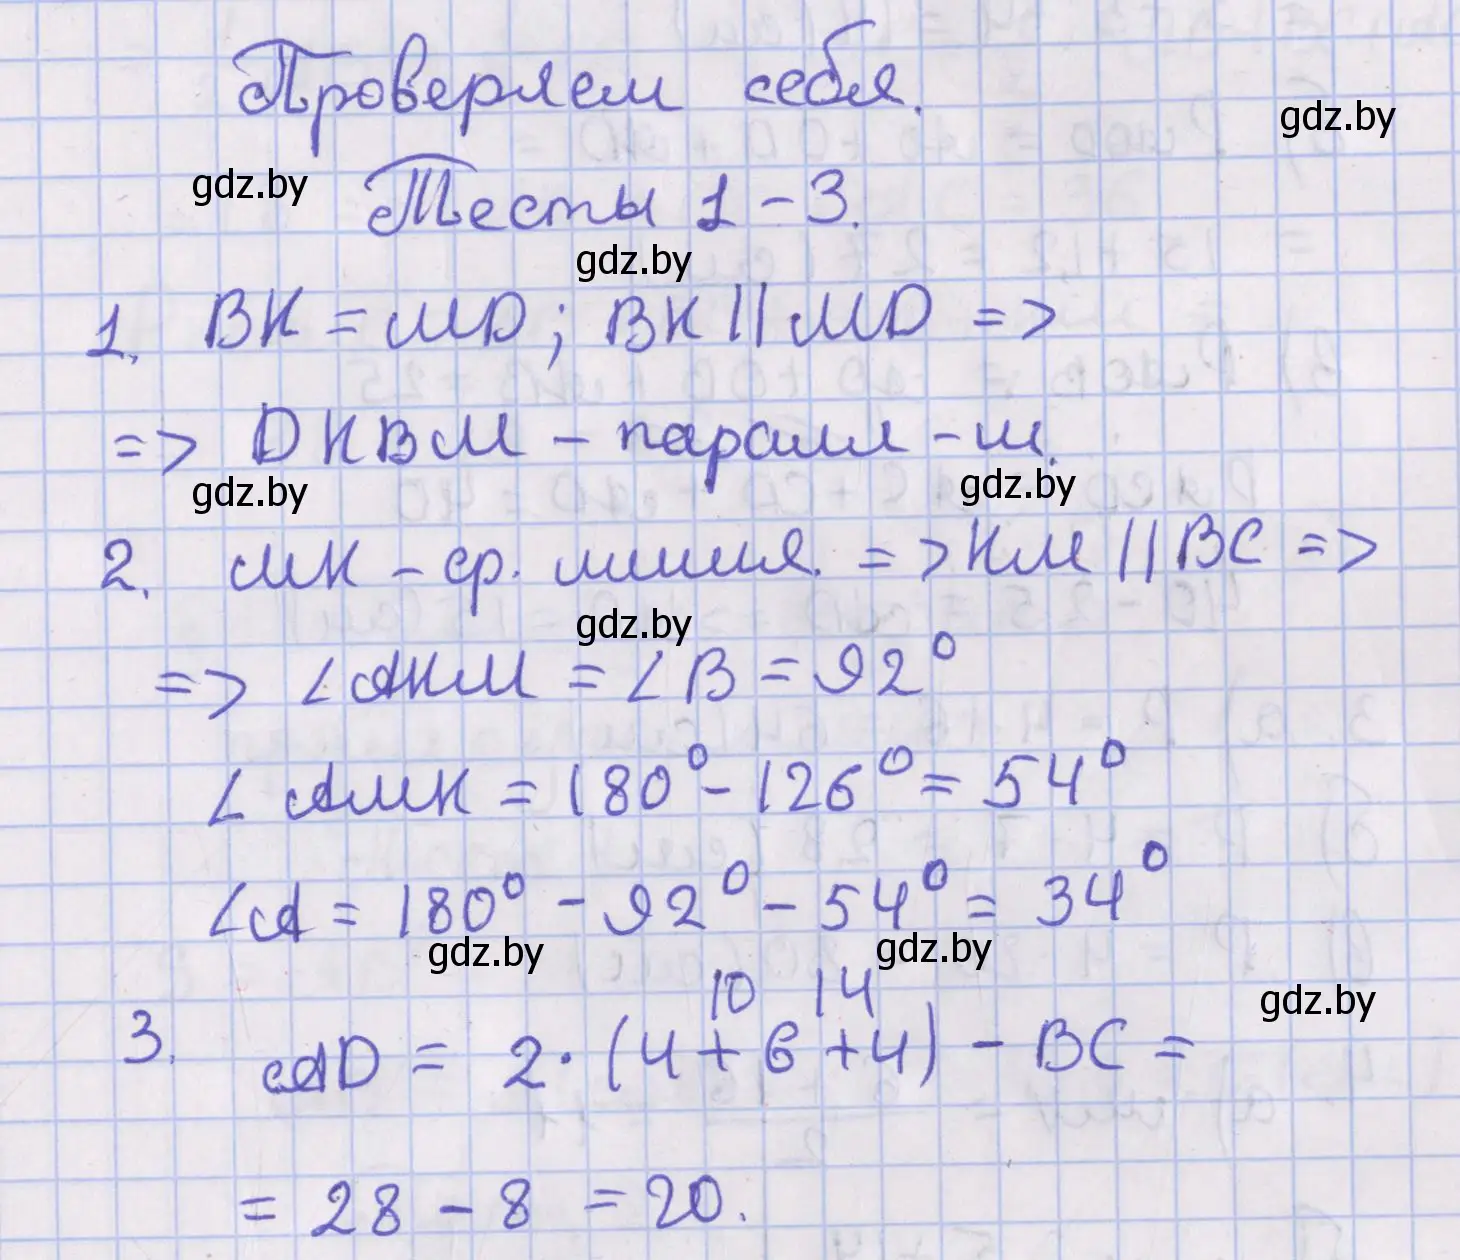 Проверяем себя.
gdz.by
gdz.by
Тесты 1 - 3.
gdz.by
1. BK = MD; BK || MD =>
=> DKBM - паралл-м.
gdz.by
gdz.by
2. MK - ср. линия. => KM || BC =>
gdz.by
=> ∠AKM = ∠B = 92°
∠AMK = 180° - 126° = 54°
∠A = 180° - 92° - 54° = 34°
gdz.by
gdz.by
10 14
gdz.by
3. AD = 2 · (4 + 6 + 4) - BC =
= 28 - 8 = 20.